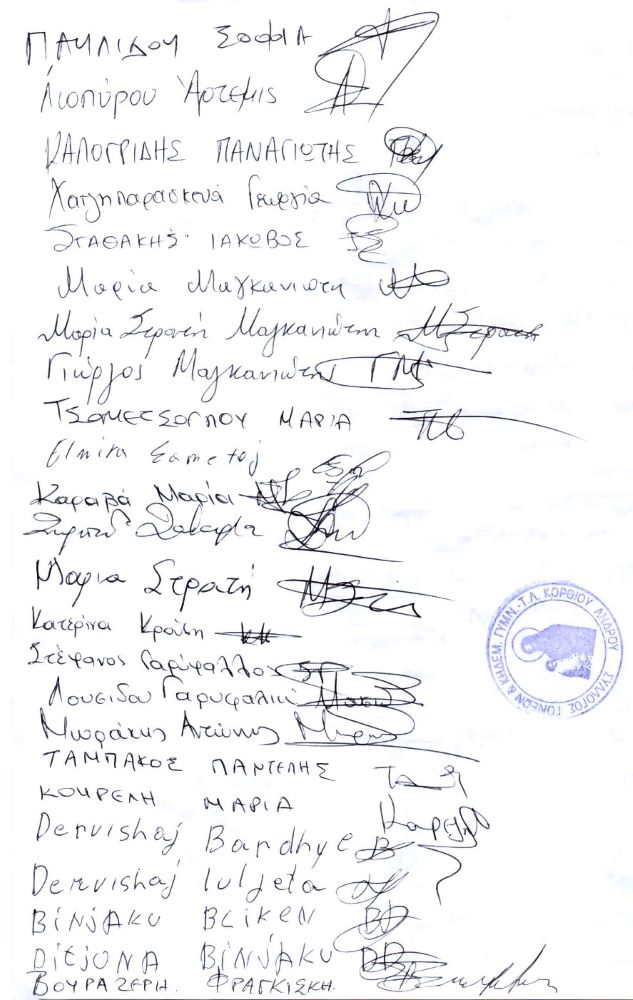 ΠΑΥΛΙΔΟΥ ΣΟΦΙΑ
Λιοπύρου Άρτεμις
ΚΑΛΟΓΡΙΔΗΣ ΠΑΝΑΓΙΩΤΗΣ
Χατζηπαρασκευά Γεωργία
ΣΤΑΘΑΚΗΣ ΙΑΚΩΒΟΣ
Μαρία Μαγκανιώτη
Μαρία Στρατή Μαγκανιώτη
Γιώργος Μαγκανιώτης ΓΜ
ΤΣΟΜΕΤΣΟΓΛΟΥ ΜΑΡΙΑ
Καραβά Μαρία
Μαρια Στρατή
Κατερίνα
Στέφανος Γαρύφαλλου
Λουσιδου Γαρυφαλιώ
Μωράκης Αντώνης
ΤΑΜΠΑΚΟΣ ΠΑΝΤΕΛΗΣ
ΚΟΥΡΕΛΗ ΜΑΡΙΑ
Dervishaj Bardhyl
Dervishaj Luljeta
BiNJAKU BLIKEN
DitJONA BiNJAKU
ΒΟΥΡΑΖΕΡΗ. ΦΡΑΓΚΙΣΚΗ.
ΣΥΛΛΟΓΟΣ ΓΟΝΕΩΝ & ΚΗΔΕΜ. ΓΥΜΝ.-Τ.Λ. ΚΟΡΘΙΟΥ ΑΝΔΡΟΥ